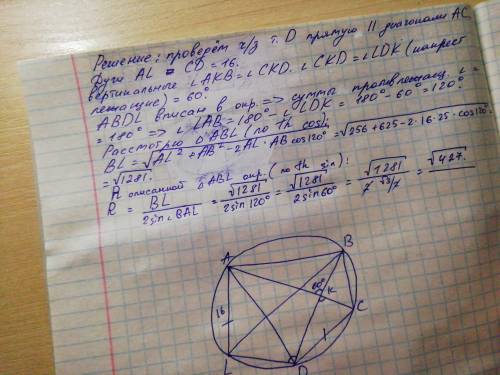 Решение: проверём ч/з т. D прямую || диагонали AC
Дуги AL = CD = 16.
вертикальные ∠AKB = ∠CKD. ∠CKD = ∠LDK (накрест
лежащие) = 60°.
ABDL вписан в окр. => суммы противлежащ. ∠ =
= 180° => ∠LAB = 180° - ∠LDK = 180° - 60° = 120°.
Рассмотрю ΔABL (по th cos):
BL = √AL² + AB² - 2AL · AB cos120° = √256 + 625 - 2 · 16 · 25 · cos120° =
= √1281.
R описанной ΔABL окр. (по th sin):
R = BL / 2sin∠BAL = √1281 / 2sin120° = √1281 / 2sin60° = √1281 / 2 √3/2 = √427.
A
B
60°
K
16
C
L
D